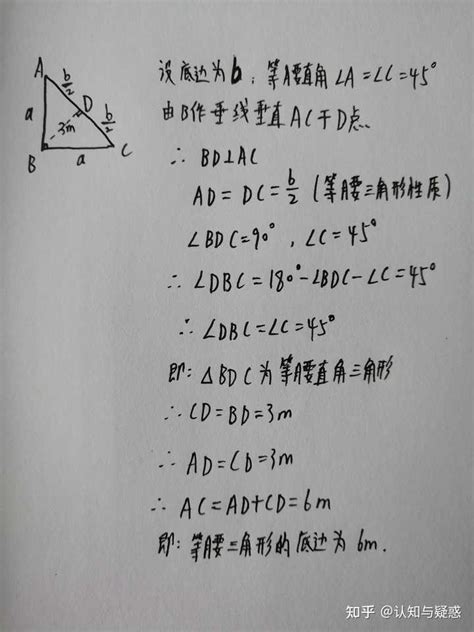 A
b/2
D
b/2
a
3m
B
a
C
设底边为b, 等腰直角 ∠A=∠C=45°
由B作垂线垂直AC于D点.
∴ BD⊥AC
AD=DC=b/2 (等腰三角形性质)
∠BDC=90°, ∠C=45°
∴ ∠DBC=180°-∠BDC-∠C=45°
∴ ∠DBC=∠C=45°
即: △BDC为等腰直角三角形
∴ CD=BD=3m
∴ AD=CD=3m
∴ AC=AD+CD=6m
即: 等腰三角形的底边为6m.
知乎 @认知与疑惑